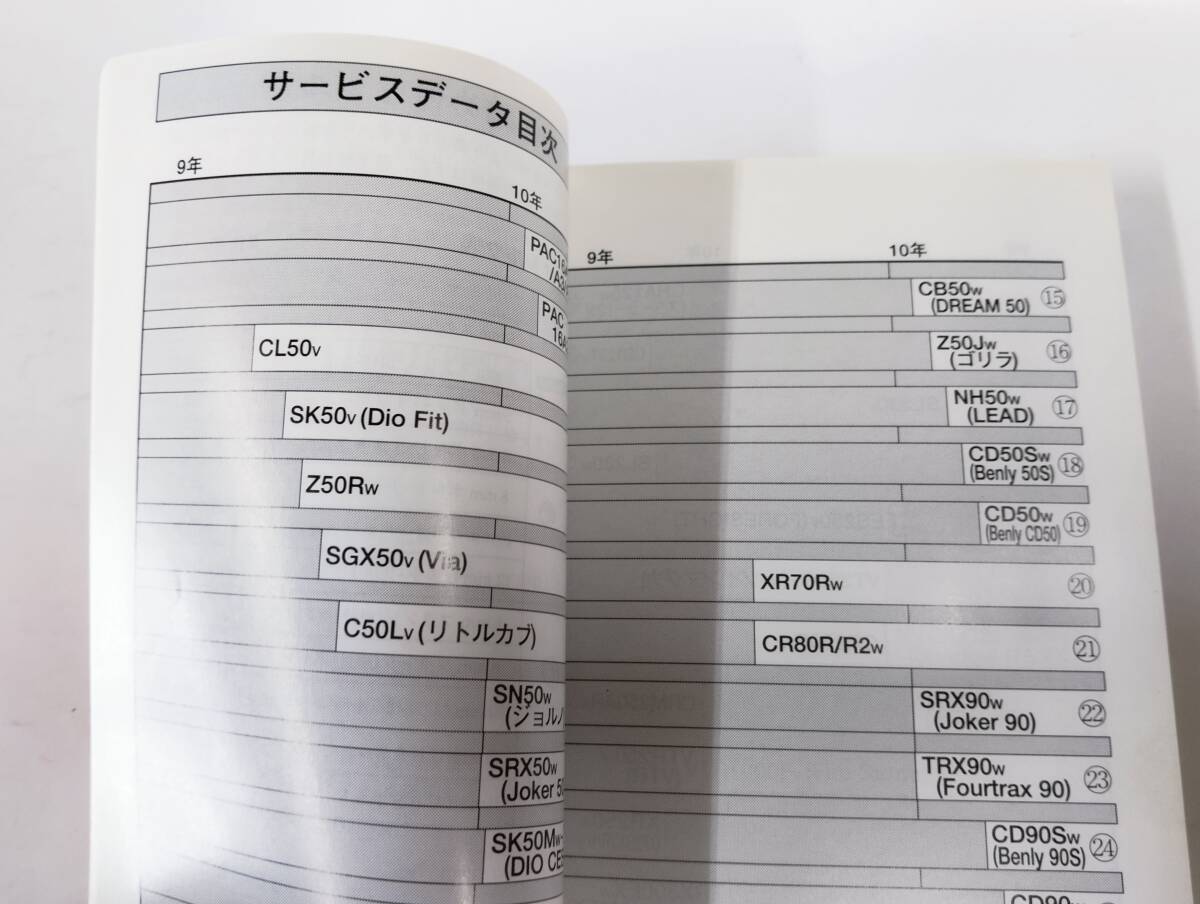 サービスデータ目次
9年
10年
PAC16
/A3
PAC
16A
CL50V
SK50V (Dio Fit)
Z50RW
SGX50V (Via)
C50LV (リトルカブ)
SN50W
(ジョルノ
SRX50W
(Joker 5
SK50MW-
(DIO CE
9年
10年
CB50W
(DREAM 50) ⑮
Z50JW
(ゴリラ) ⑯
NH50W
(LEAD) ⑰
CD50SW
(Benly 50S) ⑱
CD50W
(Benly CD50) ⑲
XR70RW ⑳
CR80R/R2W ㉑
SRX90W
(Joker 90) ㉒
TRX90W
(Fourtrax 90) ㉓
CD90SW
(Benly 90S) ㉔
CD90W